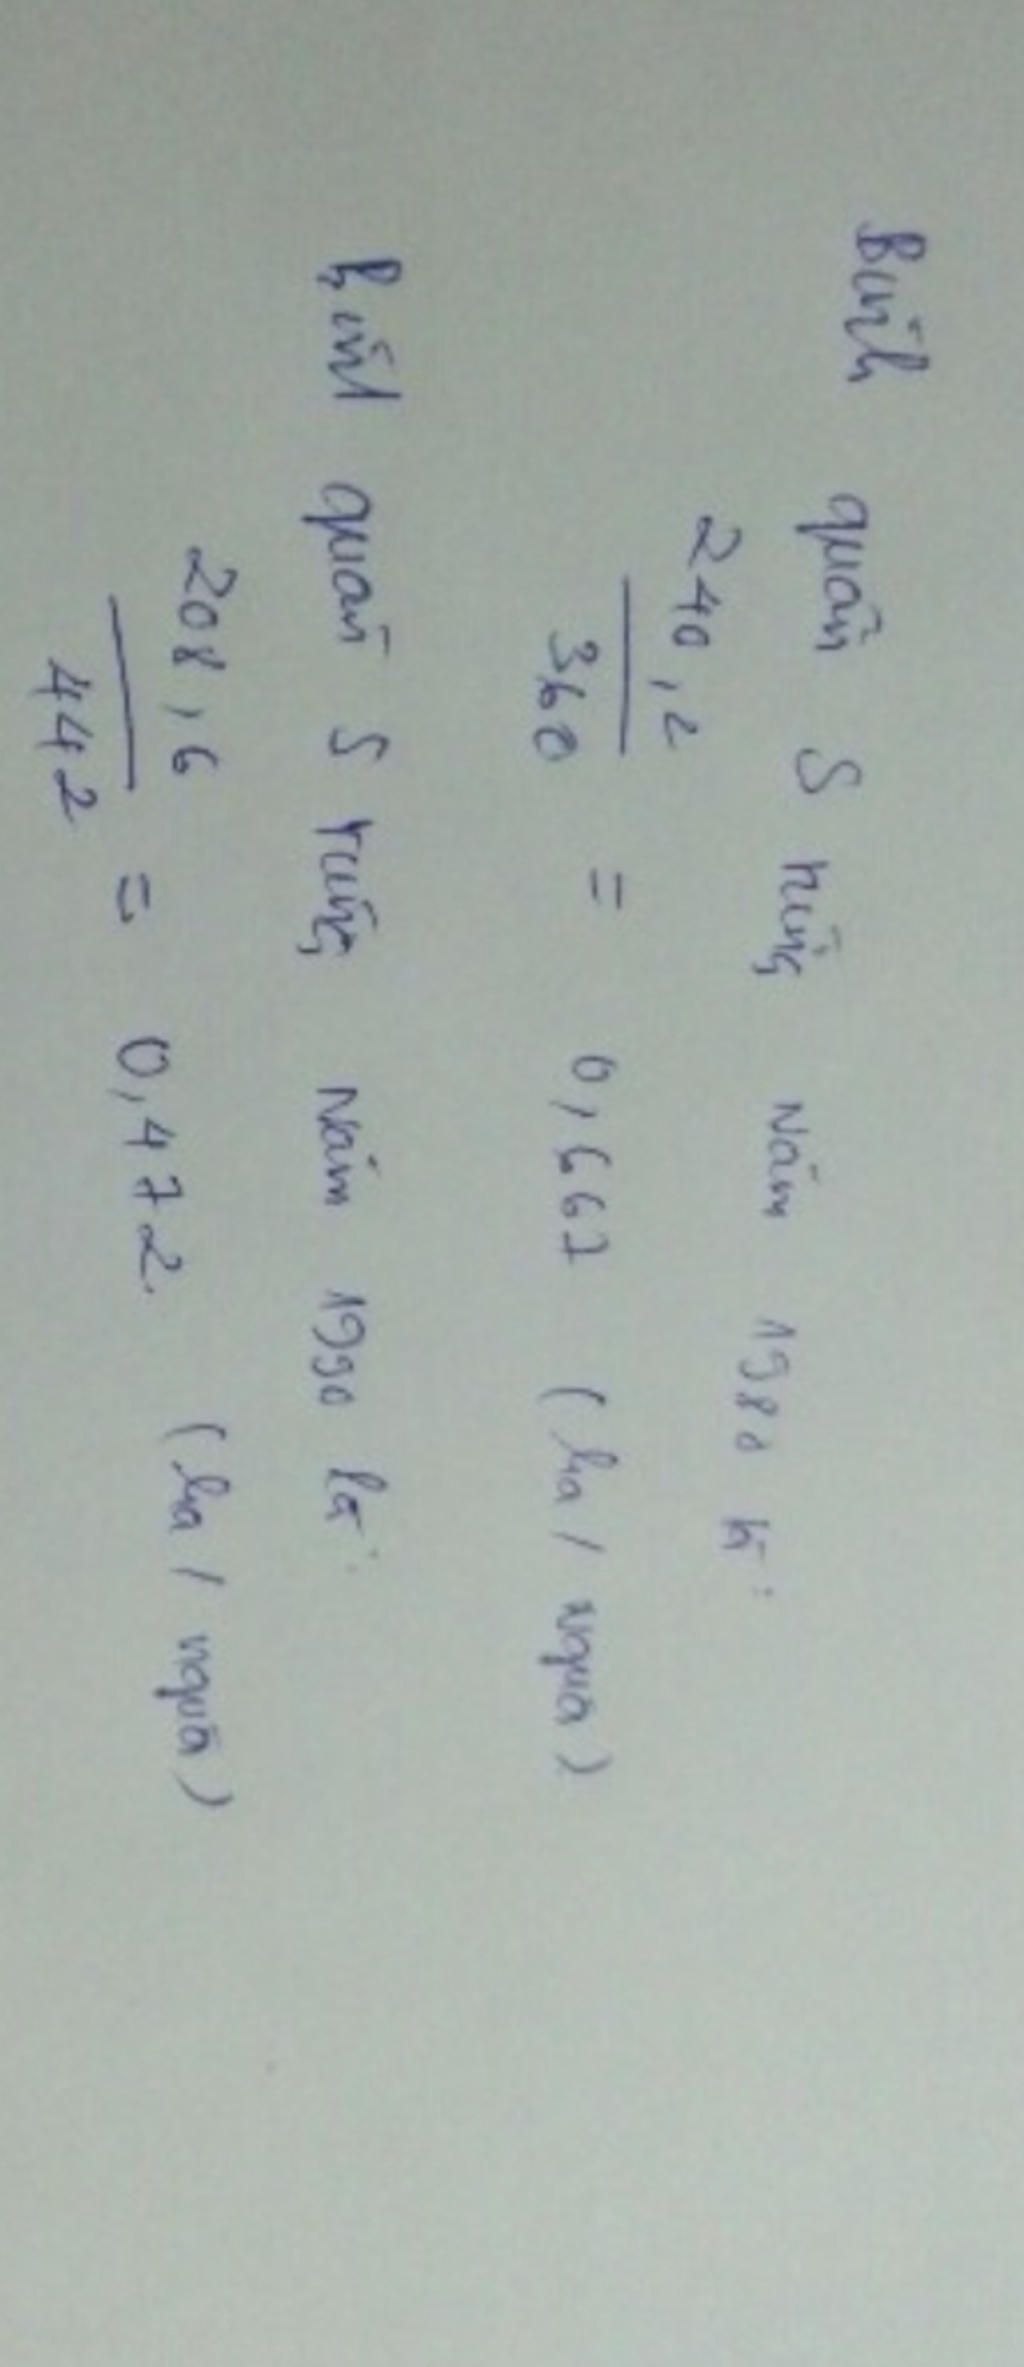 Bình quân S rừng năm 1980 là :
240,2
360
= 0,667 (ha / người)
Bình quân S rừng năm 1990 là :
208,6
442
= 0,472 (ha / người)